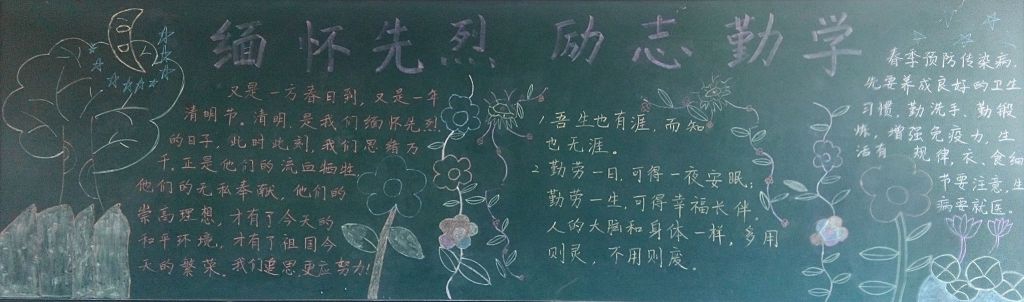 缅怀先烈 励志勤学
又是一方春日到,又是一年
清明节。清明,是我们缅怀先烈
的日子,此时此刻,我们思绪万
千,正是他们的流血牺牲
他们的无私奉献,他们的
崇高理想,才有了今天的
和平环境,才有了祖国今
天的繁荣。我们追思更应努力!
1.吾生也有涯,而知
也无涯。
2.勤劳一日,可得一夜安眠;
勤劳一生,可得幸福长伴。
人的大脑和身体一样,多用
则灵,不用则废。
春季预防传染病,
先要养成良好的卫生
习惯,勤洗手,勤锻
炼,增强免疫力,生
活有 规律,衣、食细
节要注意,生
病要就医。